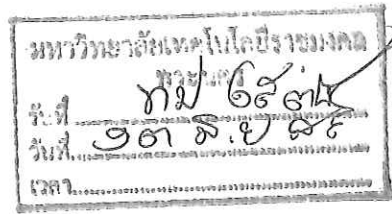 มหาวิทยาลัยเทคโนโลยีราชมงคล
พระนคร
รับที่
วันที่ ๑๓ มิ.ย ๕๙
เวลา